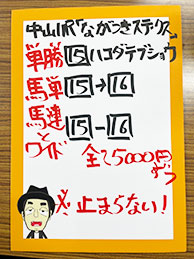 中山11R「ながつきステークス」
単勝 15 ハコダテブショウ
馬単 15→16
馬連 15-16
とワイド 全て5000円ずつ
止まらない!